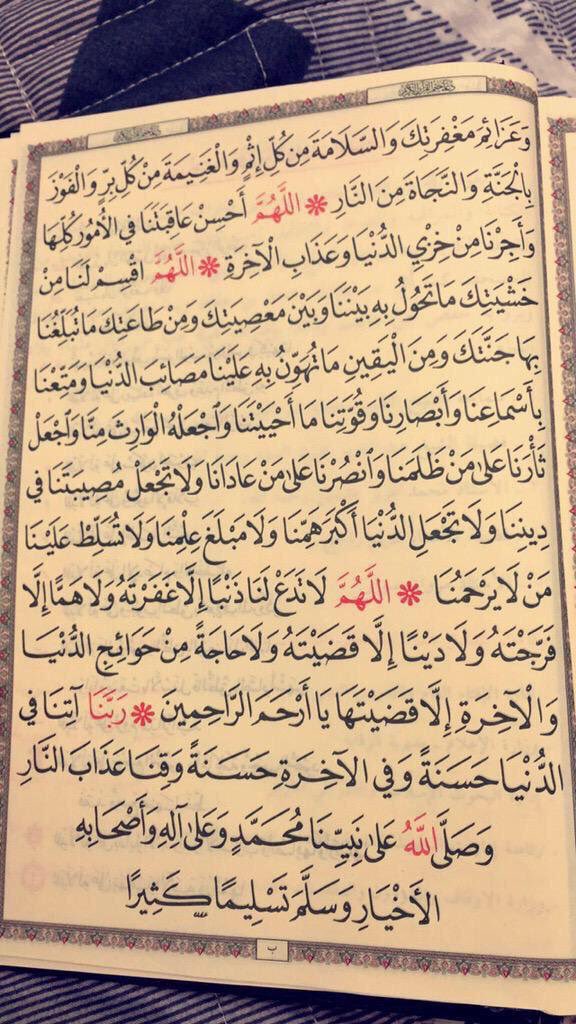 دعاء ختم القرآن الكريم
دعاء ختم القرآن الكريم
وَعَزَائِمَ مَغْفِرَتِكَ وَالسَّلَامَةَ مِنْ كُلِّ إِثْمٍ وَالْغَنِيمَةَ مِنْ كُلِّ بِرٍّ وَالْفَوْزَ
بِالْجَنَّةِ وَالنَّجَاةَ مِنَ النَّارِ * اللَّهُمَّ أَحْسِنْ عَاقِبَتَنَا فِي الْأُمُورِ كُلِّهَا
وَأَجِرْنَا مِنْ خِزْيِ الدُّنْيَا وَعَذَابِ الْآخِرَةِ * اللَّهُمَّ اقْسِمْ لَنَا مِنْ
خَشْيَتِكَ مَا تَحُولُ بِهِ بَيْنَنَا وَبَيْنَ مَعْصِيَتِكَ وَمِنْ طَاعَتِكَ مَا تُبَلِّغُنَا
بِهَا جَنَّتَكَ وَمِنَ الْيَقِينِ مَا تُهَوِّنُ بِهِ عَلَيْنَا مَصَائِبَ الدُّنْيَا وَمَتِّعْنَا
بِأَسْمَاعِنَا وَأَبْصَارِنَا وَقُوَّتِنَا مَا أَحْيَيْتَنَا وَاجْعَلْهُ الْوَارِثَ مِنَّا وَاجْعَلْ
ثَأْرَنَا عَلَى مَنْ ظَلَمَنَا وَانْصُرْنَا عَلَى مَنْ عَادَانَا وَلَا تَجْعَلْ مُصِيبَتَنَا فِي
دِينِنَا وَلَا تَجْعَلِ الدُّنْيَا أَكْبَرَ هَمِّنَا وَلَا مَبْلَغَ عِلْمِنَا وَلَا تُسَلِّطْ عَلَيْنَا
مَنْ لَا يَرْحَمُنَا * اللَّهُمَّ لَا تَدَعْ لَنَا ذَنْبًا إِلَّا غَفَرْتَهُ وَلَا هَمًّا إِلَّا
فَرَّجْتَهُ وَلَا دَيْنًا إِلَّا قَضَيْتَهُ وَلَا حَاجَةً مِنْ حَوَائِجِ الدُّنْيَا
وَالْآخِرَةِ إِلَّا قَضَيْتَهَا يَا أَرْحَمَ الرَّاحِمِينَ * رَبَّنَا آتِنَا فِي
الدُّنْيَا حَسَنَةً وَفِي الْآخِرَةِ حَسَنَةً وَقِنَا عَذَابَ النَّارِ
وَصَلَّى اللَّهُ عَلَى نَبِيِّنَا مُحَمَّدٍ وَعَلَى آلِهِ وَأَصْحَابِهِ
الْأَخْيَارِ وَسَلَّمَ تَسْلِيمًا كَثِيرًا
ب